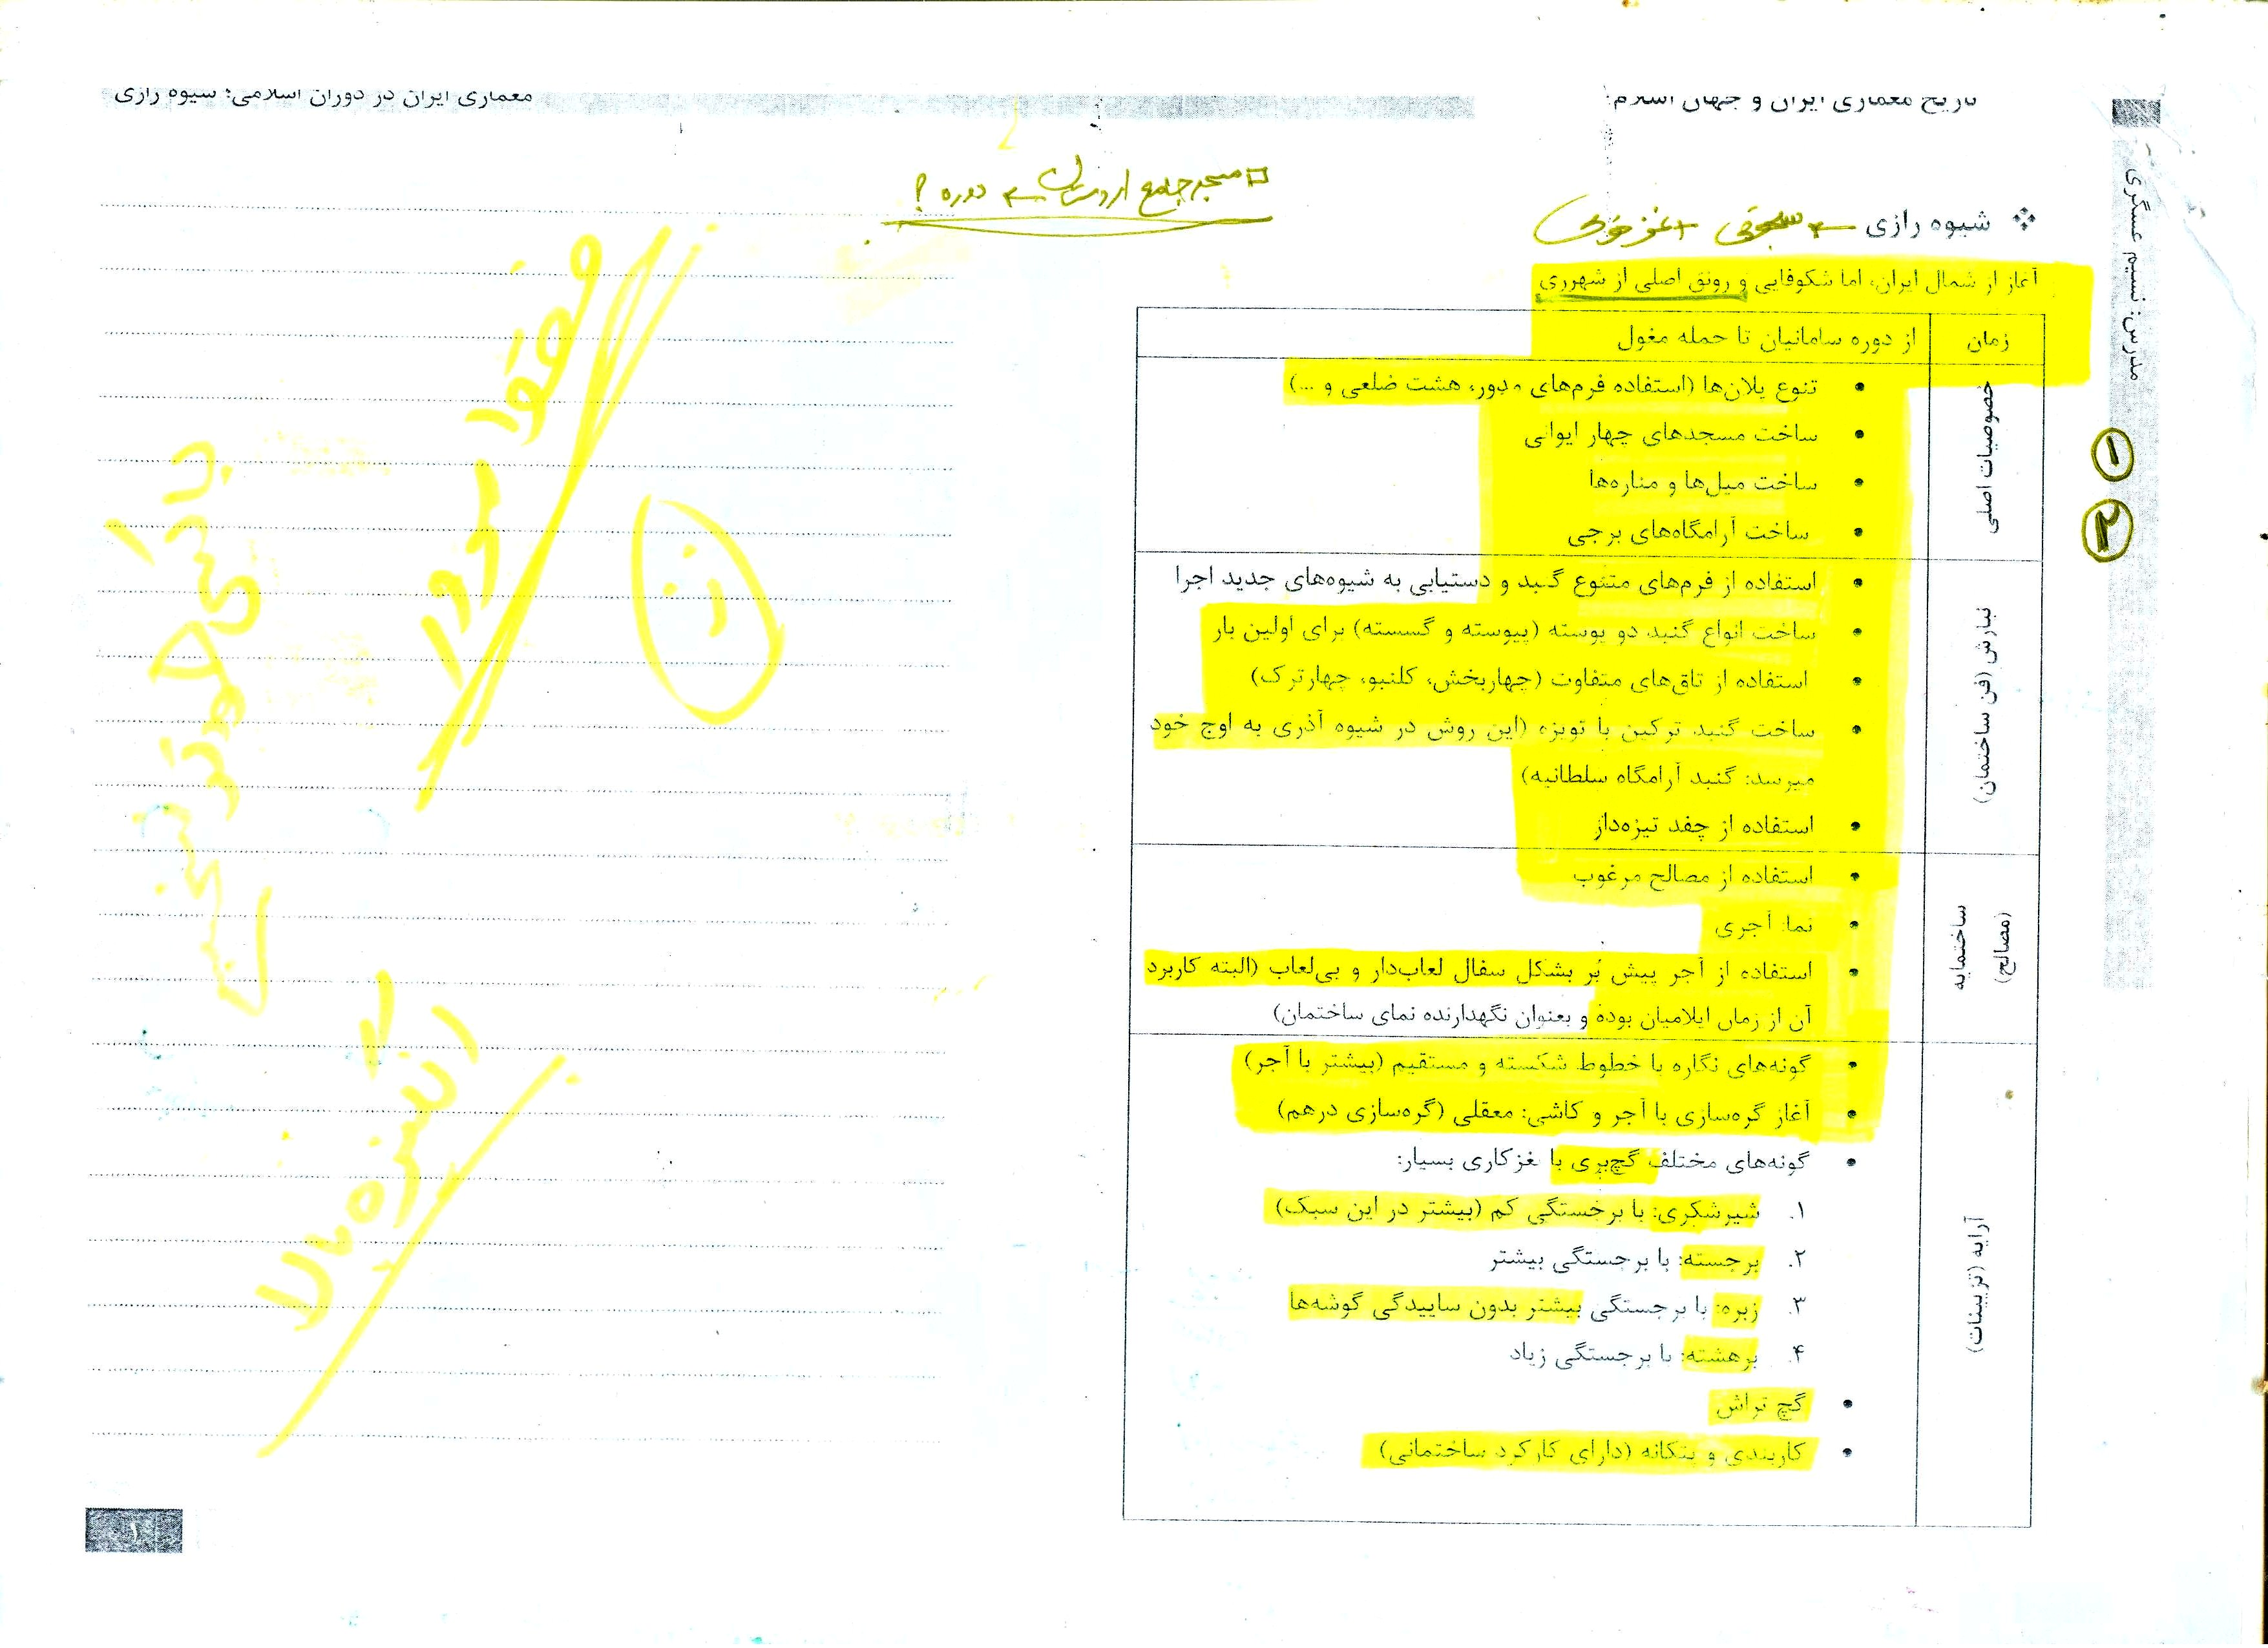 تاریخ معماری ایران و جهان اسلام:
معماری ایران در دوران اسلامی؛ شیوه رازی
مدرس: نسیم عسگری
۱
۲
مسجد جامع اردستان ← دوره ؟
شیوه رازی ← سلجوقی + غزنوی
آغاز از شمال ایران، اما شکوفایی و رونق اصلی از شهرری
زمان
از دوره سامانیان تا حمله مغول
خصوصیات اصلی
• تنوع پلان‌ها (استفاده فرم‌های مدور، هشت ضلعی و ...)
• ساخت مسجدهای چهار ایوانی
• ساخت میل‌ها و مناره‌ها
• ساخت آرامگاه‌های برجی
نیارش (فن ساختمان)
• استفاده از فرم‌های متنوع گنبد و دستیابی به شیوه‌های جدید اجرا
• ساخت انواع گنبد دو پوسته (پیوسته و گسسته) برای اولین بار
• استفاده از تاق‌های متفاوت (چهاربخش، کلنبو، چهارترک)
• ساخت گنبد ترکین با تویزه (این روش در شیوه آذری به اوج خود
میرسد: گنبد آرامگاه سلطانیه)
• استفاده از چفد تیزه‌دار
ساختمایه
(مصالح)
• استفاده از مصالح مرغوب
• نما: آجری
• استفاده از آجر پیش بُر بشکل سفال لعاب‌دار و بی‌لعاب (البته کاربرد
آن از زمان ایلامیان بوده و بعنوان نگهدارنده نمای ساختمان)
آرایه (تزیینات)
• گونه‌های نگاره با خطوط شکسته و مستقیم (بیشتر با آجر)
• آغاز گره‌سازی با آجر و کاشی: معقلی (گره‌سازی درهم)
• گونه‌های مختلف گچ‌بری با غزکاری بسیار:
۱. شیرشکری: با برجستگی کم (بیشتر در این سبک)
۲. برجسته: با برجستگی بیشتر
۳. زبره: با برجستگی بیشتر بدون ساییدگی گوشه‌ها
۴. برهشته: با برجستگی زیاد
• گچ تراش
• کاربندی و پتکانه (دارای کارکرد ساختمانی)
فقط مرور
انگیزه بالا
۱